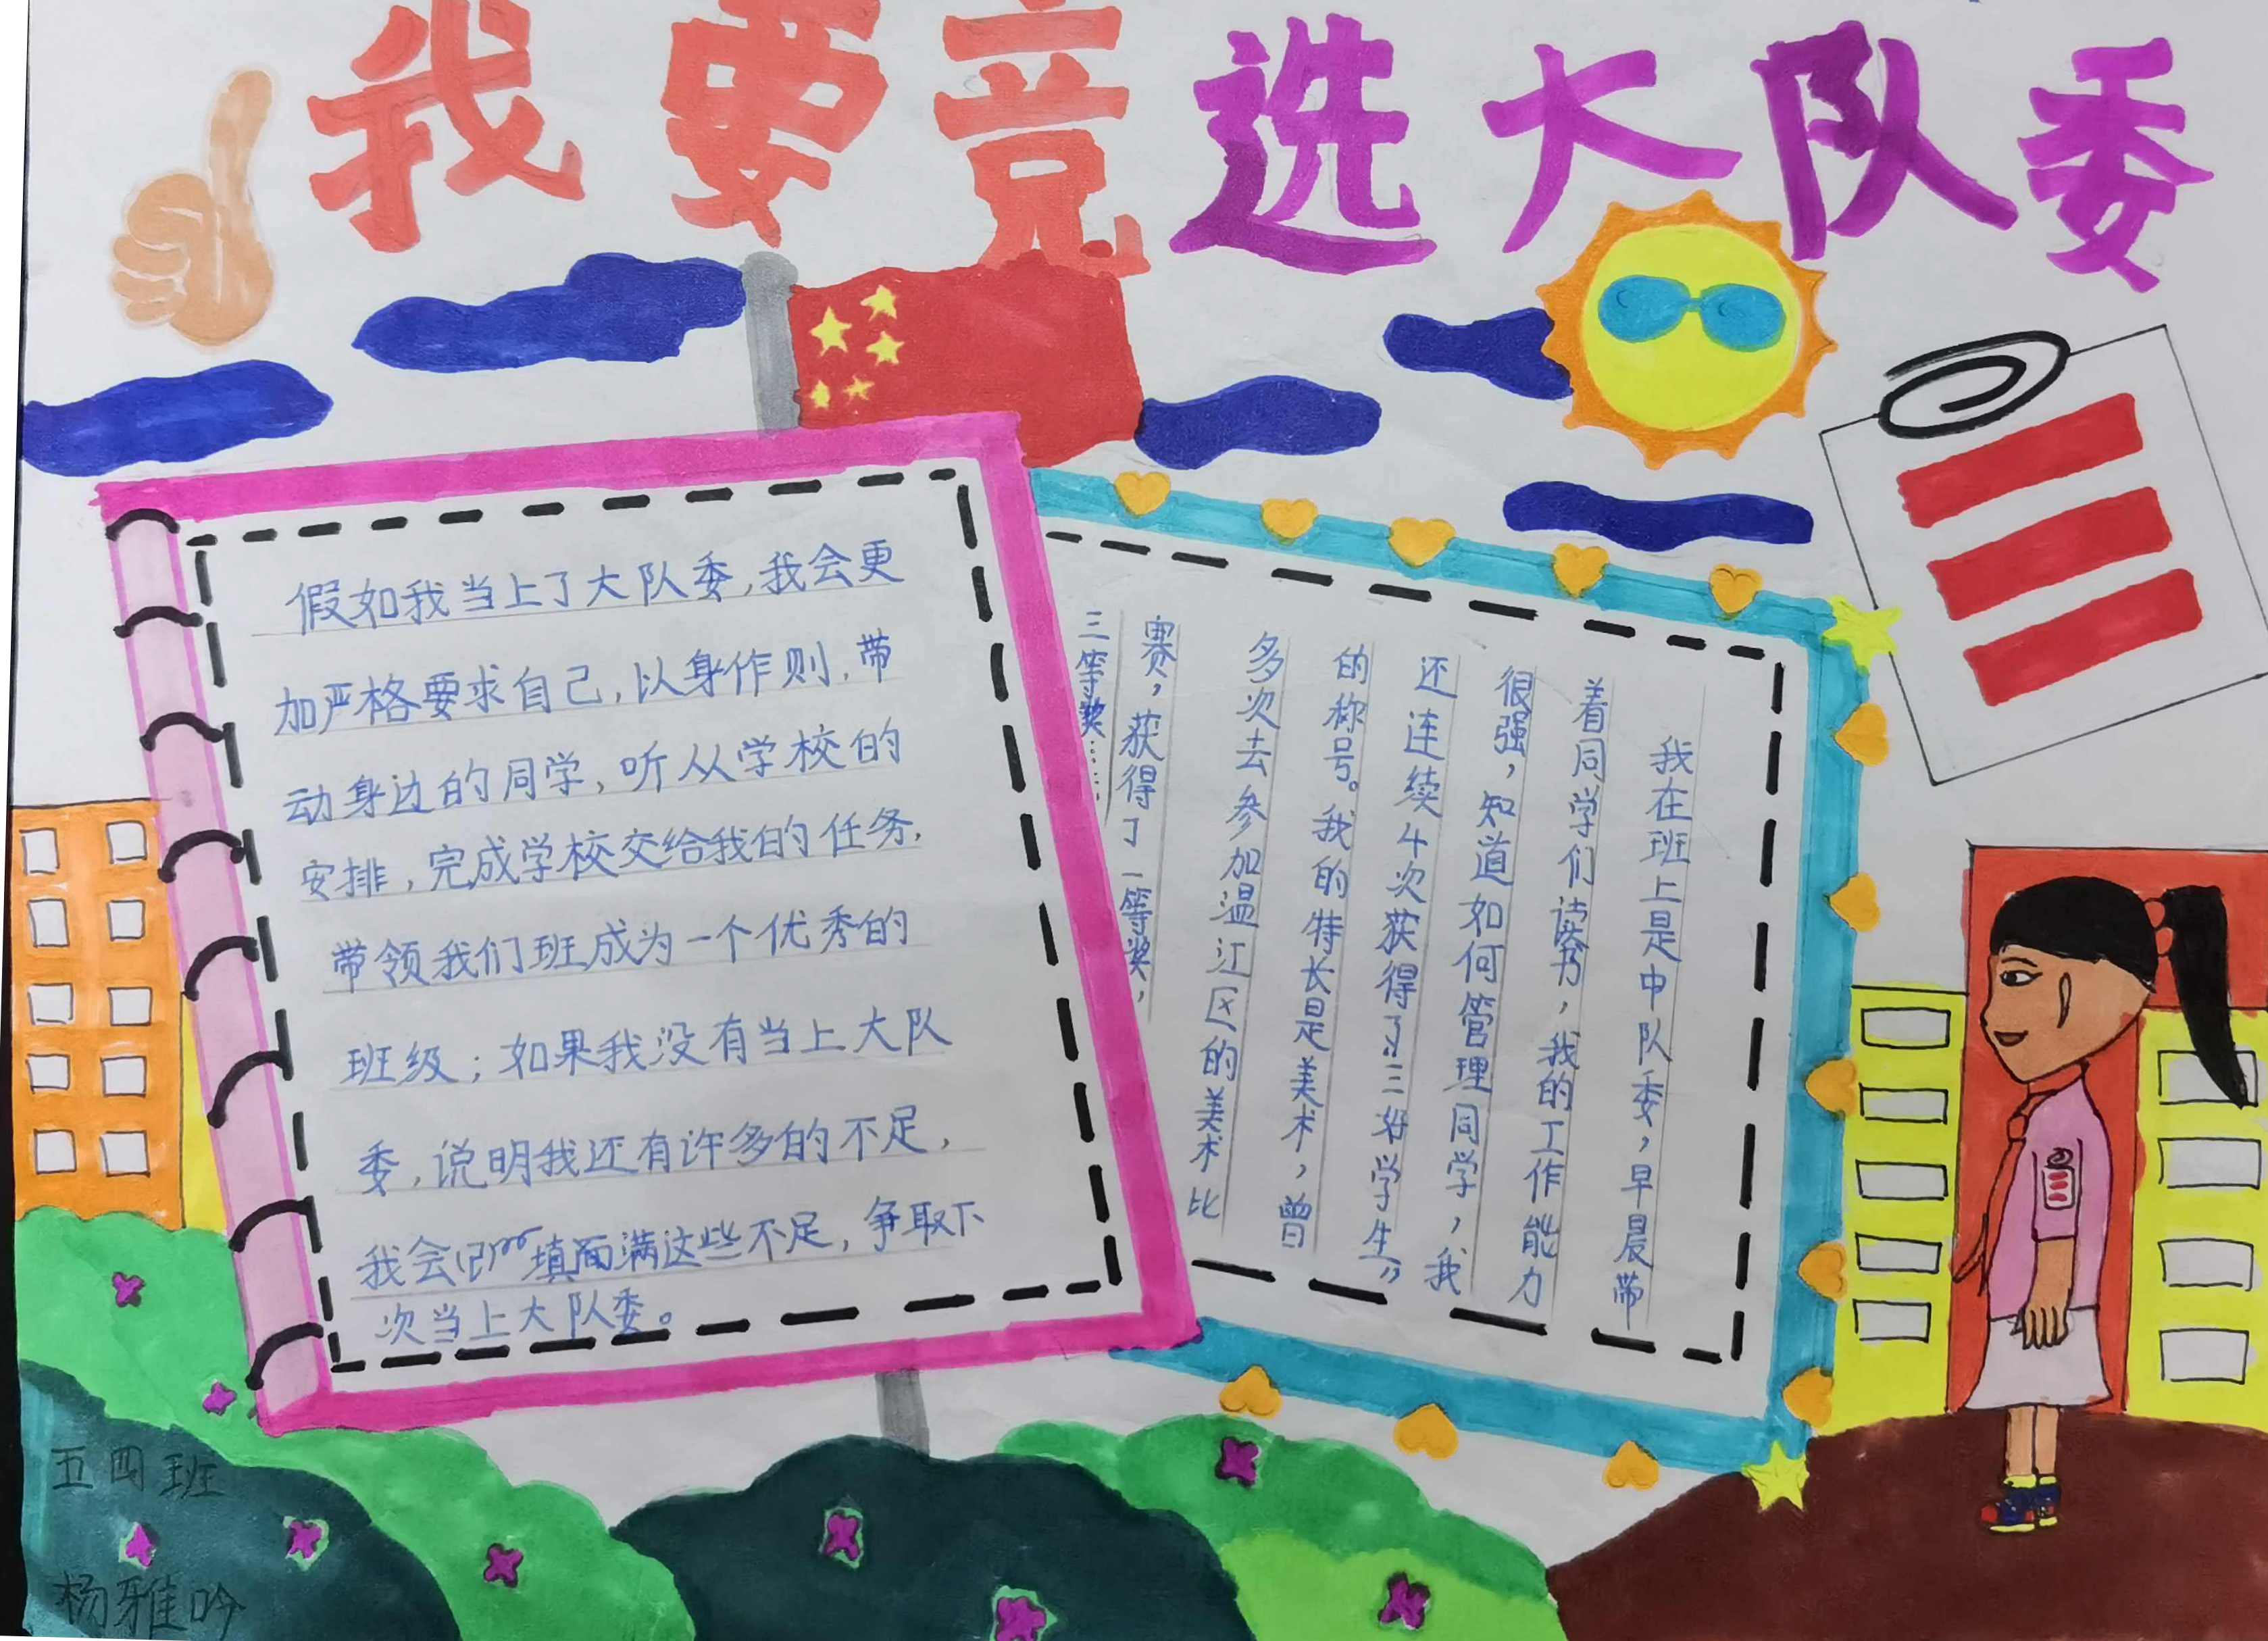 我要竞选大队委
假如我当上了大队委,我会更
加严格要求自己,以身作则,带
动身边的同学,听从学校的
安排,完成学校交给我的任务,
带领我们班成为一个优秀的
班级;如果我没有当上大队
委,说明我还有许多的不足,
我会填满这些不足,争取下
次当上大队委。
我在班上是中队委,早晨带
着同学们读书,我的工作能力
很强,知道如何管理同学,我
还连续4次获得了“三好学生”
的称号。我的特长是美术,曾
多次去参加温江区的美术比
赛,获得了一等奖,
三等奖……
五四班
杨雅吟